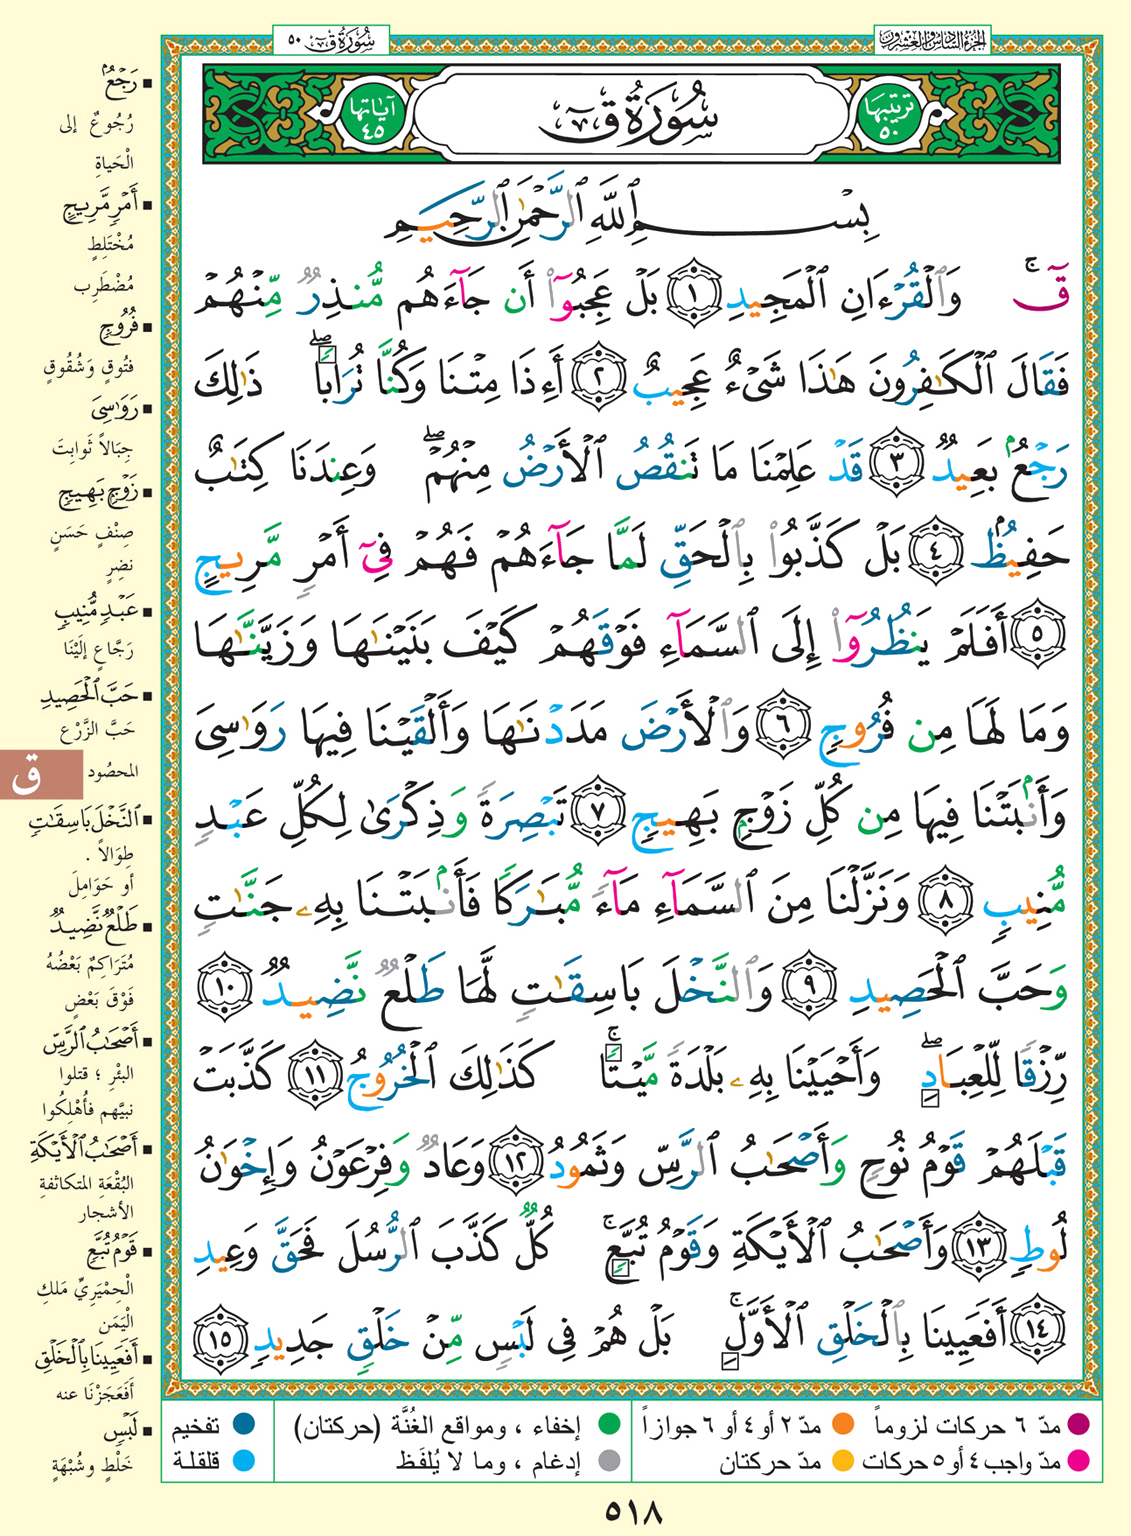 الجزء السادس والعشرون
سُورَةُ قٓ ٥٠
ترتيبها ٥٠
سُورَةُ قٓ
آياتها ٤٥
بِسۡمِ ٱللَّهِ ٱلرَّحۡمَٰنِ ٱلرَّحِيمِ
قٓۚ وَٱلۡقُرۡءَانِ ٱلۡمَجِيدِ ١ بَلۡ عَجِبُوٓاْ أَن جَآءَهُم مُّنذِرٞ مِّنۡهُمۡ
فَقَالَ ٱلۡكَٰفِرُونَ هَٰذَا شَيۡءٌ عَجِيبٌ ٢ أَءِذَا مِتۡنَا وَكُنَّا تُرَابٗاۖ ذَٰلِكَ
رَجۡعُۢ بَعِيدٞ ٣ قَدۡ عَلِمۡنَا مَا تَنقُصُ ٱلۡأَرۡضُ مِنۡهُمۡۖ وَعِندَنَا كِتَٰبٌ
حَفِيظُۢ ٤ بَلۡ كَذَّبُواْ بِٱلۡحَقِّ لَمَّا جَآءَهُمۡ فَهُمۡ فِيٓ أَمۡرٖ مَّرِيجٍ
٥ أَفَلَمۡ يَنظُرُوٓاْ إِلَى ٱلسَّمَآءِ فَوۡقَهُمۡ كَيۡفَ بَنَيۡنَٰهَا وَزَيَّنَّٰهَا
وَمَا لَهَا مِن فُرُوجٖ ٦ وَٱلۡأَرۡضَ مَدَدۡنَٰهَا وَأَلۡقَيۡنَا فِيهَا رَوَٰسِيَ
وَأَنۢبَتۡنَا فِيهَا مِن كُلِّ زَوۡجِۭ بَهِيجٖ ٧ تَبۡصِرَةٗ وَذِكۡرَىٰ لِكُلِّ عَبۡدٖ
مُّنِيبٖ ٨ وَنَزَّلۡنَا مِنَ ٱلسَّمَآءِ مَآءٗ مُّبَٰرَكٗا فَأَنۢبَتۡنَا بِهِۦ جَنَّٰتٖ
وَحَبَّ ٱلۡحَصِيدِ ٩ وَٱلنَّخۡلَ بَاسِقَٰتٖ لَّهَا طَلۡعٞ نَّضِيدٞ ١٠
رِّزۡقٗا لِّلۡعِبَادِۖ وَأَحۡيَيۡنَا بِهِۦ بَلۡدَةٗ مَّيۡتٗاۚ كَذَٰلِكَ ٱلۡخُرُوجُ ١١ كَذَّبَتۡ
قَبۡلَهُمۡ قَوۡمُ نُوحٖ وَأَصۡحَٰبُ ٱلرَّسِّ وَثَمُودُ ١٢ وَعَادٞ وَفِرۡعَوۡنُ وَإِخۡوَٰنُ
لُوطٖ ١٣ وَأَصۡحَٰبُ ٱلۡأَيۡكَةِ وَقَوۡمُ تُبَّعٖۚ كُلّٞ كَذَّبَ ٱلرُّسُلَ فَحَقَّ وَعِيدِ
١٤ أَفَعَيِينَا بِٱلۡخَلۡقِ ٱلۡأَوَّلِۚ بَلۡ هُمۡ فِي لَبۡسٖ مِّنۡ خَلۡقٖ جَدِيدٖ ١٥
■ رَجۡعُۢ
رُجُوعٌ إلى
الْحَياةِ
■ أَمۡرٖ مَّرِيجٖ
مُخْتَلِطٍ
مُضْطَرِب
■ فُرُوجٖ
فتُوقٍ وَشُقُوقٍ
■ رَوَٰسِيَ
جِبَالاً ثَوابِتَ
■ زَوۡجِۭ بَهِيجٖ
صِنْفٍ حَسَنٍ
نضِرٍ
■ عَبۡدٖ مُّنِيبٖ
رَجَّاعٍ إلَيْنَا
■ حَبَّ ٱلۡحَصِيدِ
حَبَّ الزَّرْع
المحصُود
ق
■ ٱلنَّخۡلَ بَاسِقَٰتٖ
طِوَالاً .
أو حَوَامِلَ
■ طَلۡعٞ نَّضِيدٞ
مُتَرَاكِمٌ بَعْضُهُ
فَوْقَ بَعْضٍ
■ أَصۡحَٰبُ ٱلرَّسِّ
البئْرِ ؛ قتلوا
نبيَّهم فأُهْلِكُوا
■ أَصۡحَٰبُ ٱلۡأَيۡكَةِ
البُقْعَةِ المتكاثفةِ
الأشجار
■ قَوۡمُ تُبَّعٖ
الْحِمْيَرِيِّ مَلكِ
الْيَمَن
■ أَفَعَيِينَا بِٱلۡخَلۡقِ
أَفَعَجَزْنَا عنه
■ لَبۡسٖ
خَلْطٍ وشُبْهَةٍ
مدّ ٦ حركات لزوماً ● مدّ ٢ أو ٤ أو ٦ جوازاً ● إخفاء ، ومواقع الغُنَّة (حركتان) ● تفخيم
مدّ واجب ٤ أو ٥ حركات ● مدّ حركتان ● إدغام ، وما لا يُلفَظ ● قلقلة
٥١٨